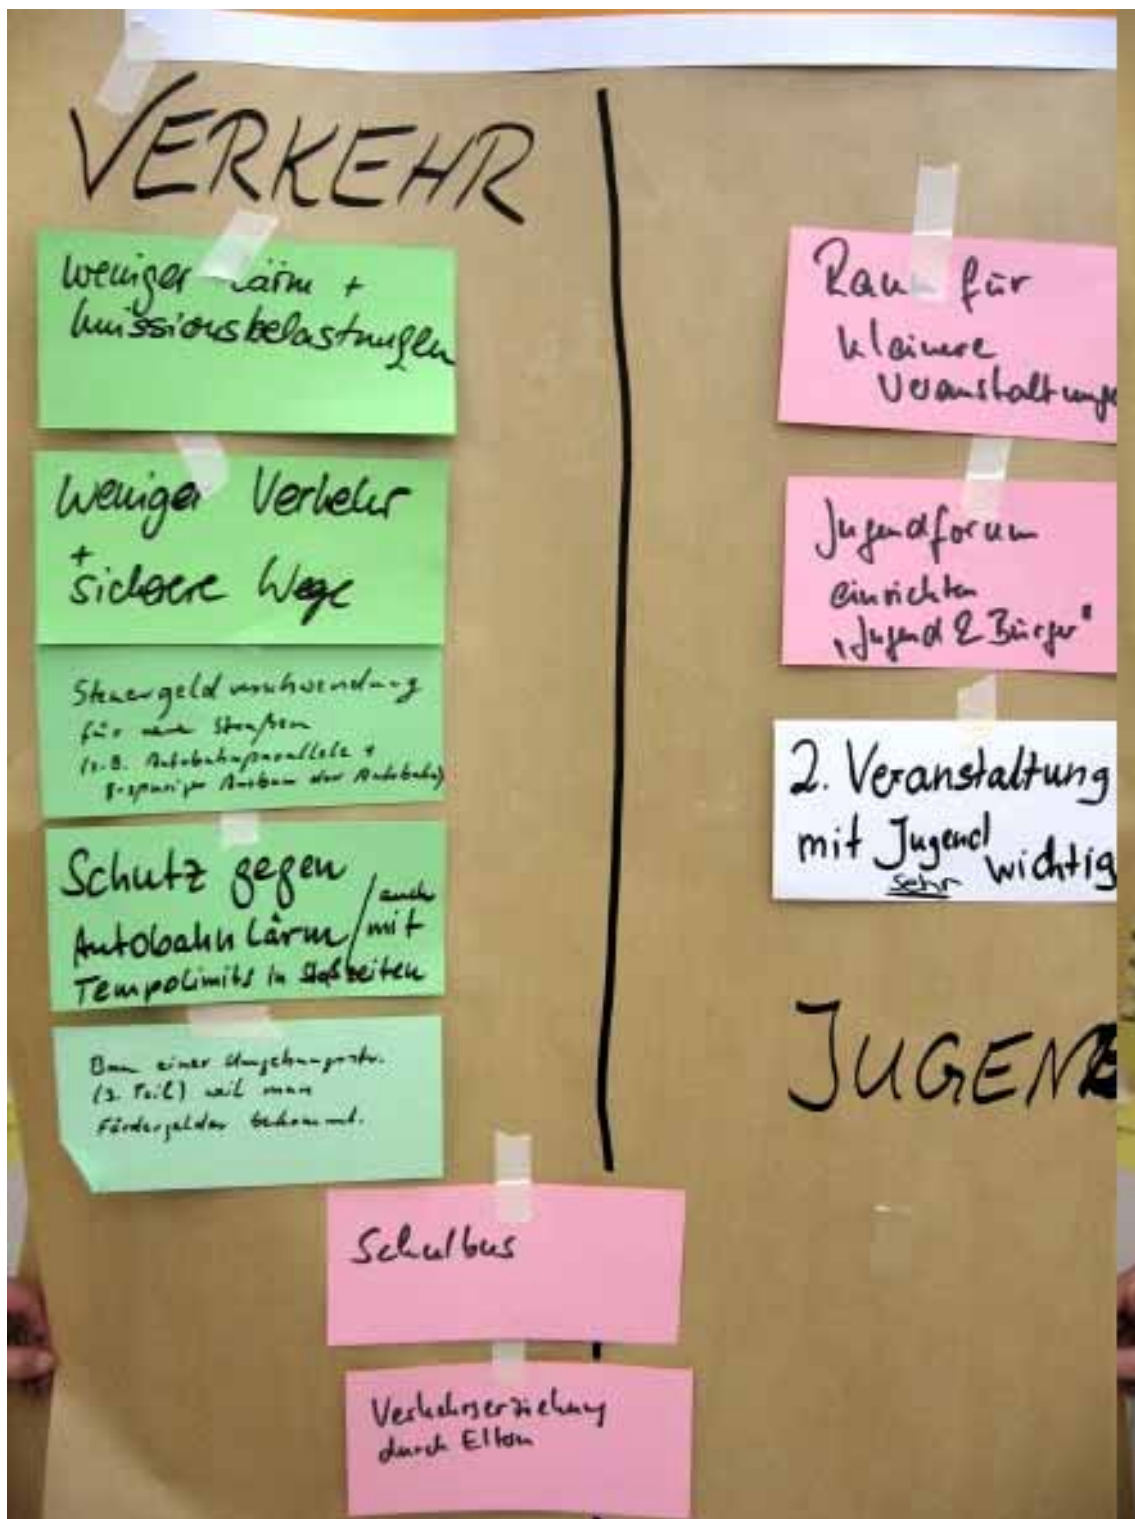 VERKEHR
weniger Lärm +
Imissionsbelastungen
Weniger Verkehr
+
sichere Wege
Steuergeldverschwendung
für neue Straßen
(z.B. Autobahnparallele +
8-spuriger Ausbau der Autobahn)
Schutz gegen
Autobahnlärm / auch mit
Tempolimits in Stoßzeiten
Bau einer Umgehungsstr.
(2. Teil) weil man
Fördergelder bekommt.
Schulbus
Verkehrserziehung
durch Eltern
Raum für
kleinere
Veranstaltunge
Jugendforum
einrichten
„Jugend & Bürger"
2. Veranstaltung
mit Jugend
sehr wichtig
JUGEND